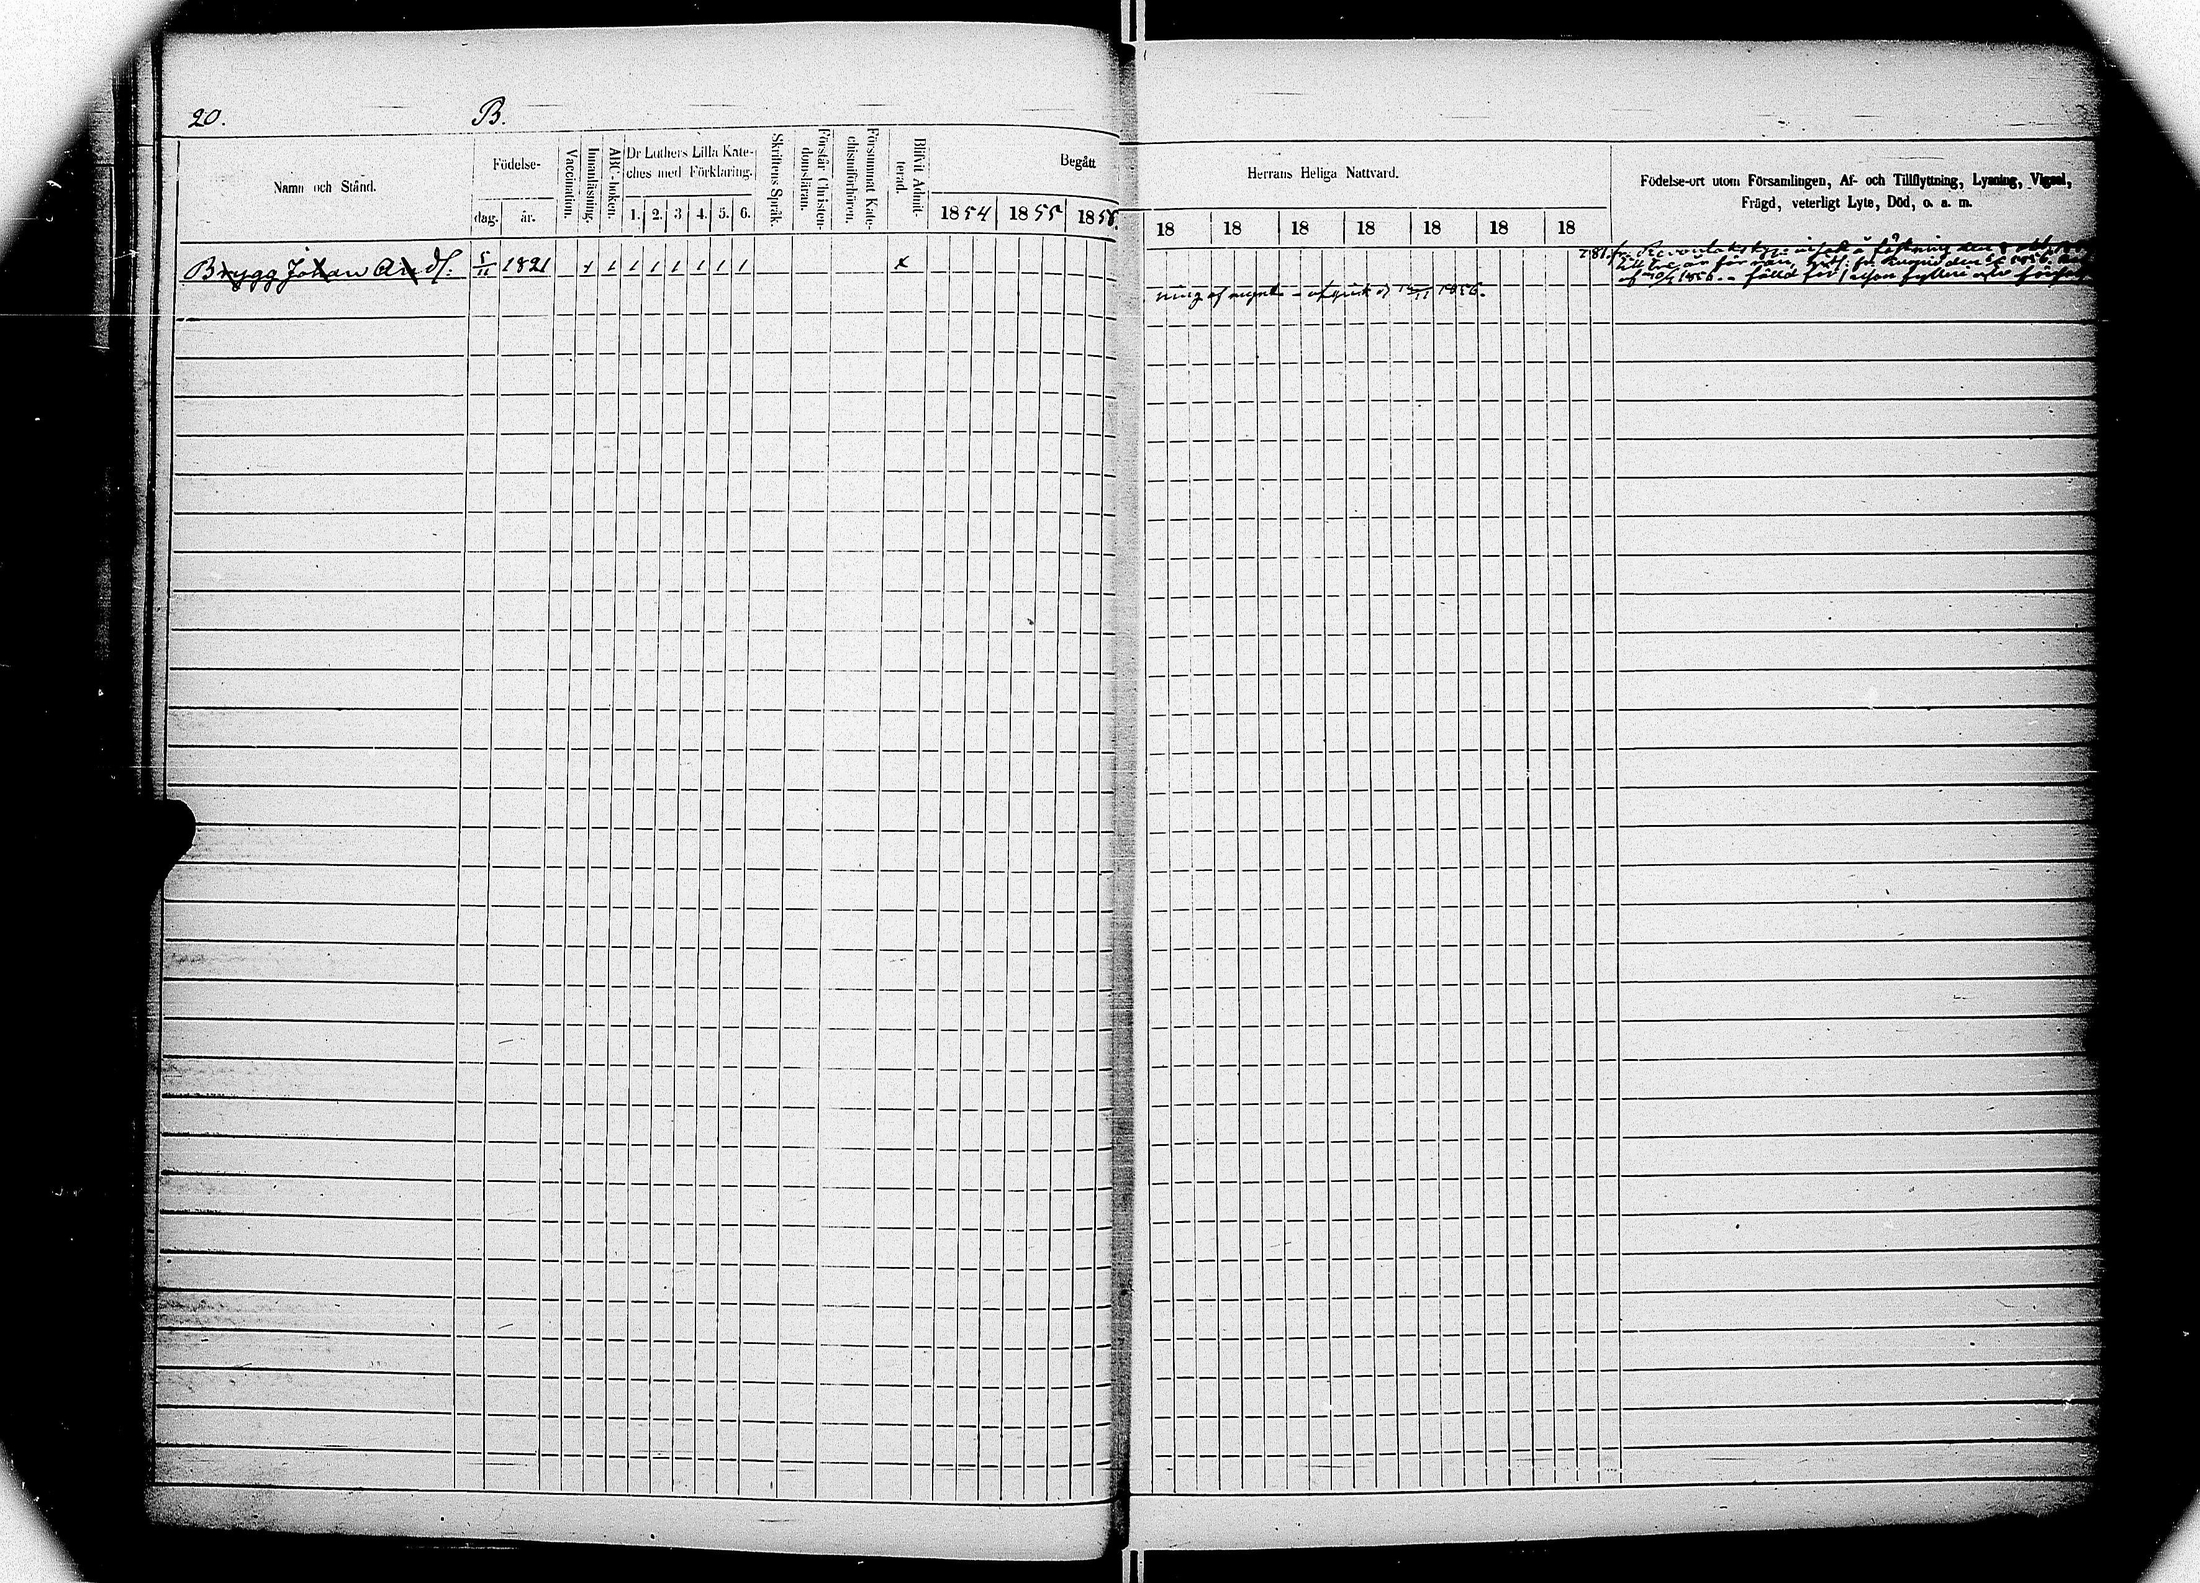 20. B.
Namn och Stånd.
Födelse-
dag. år.
Vaccination.
Innanläsning.
ABC-boken.
Dr Luthers Lilla Kate-
ches med Förklaring.
1. 2. 3 4. 5. 6.
Skriftens Språk.
Förstår Christen-
domsläran.
Försummat Kate-
chismiförhören.
Blifvit Admit-
terad.
Begått
1854 1855 1856
Brygg Johan And.
5/11 1821 1 1 1 1 1 1 1 1 x
Herrans Heliga Nattvard.
18 18 18 18 18 18 18
Födelse-ort utom Församlingen, Af- och Tillflyttning, Lysning, Vigsel,
Frägd, veterligt Lyte, Död, o. a. m.
781. fästning den
till tre år för rån den
1856. - fälld för
ning af mynt - 11 1856.